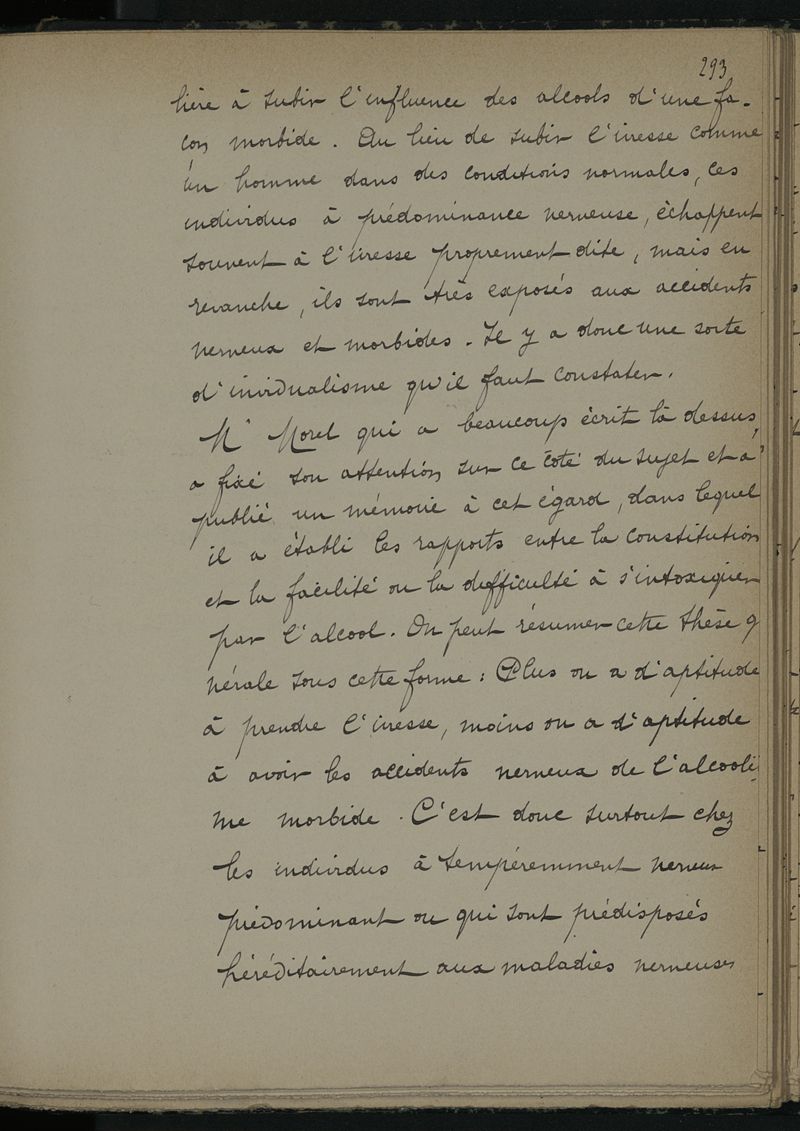 293
lière à subir l'influence des alcools d'une fa-
çon morbide. Au lieu de subir l'ivresse comme
un homme dans des conditions normales, ces
individus à prédominance nerveuse, échappent
souvent à l'ivresse proprement dite, mais en
revanche, ils sont très exposés aux accidents
nerveux et morbides. Il y a donc une sorte
d'inividualisme qu'il faut constater.
Mr Morel qui a beaucoup écrit là dessus,
a fixé son attention sur ce côté du sujet et a
publié un mémoire à cet égard, dans lequel
il a établi les rapports entre la constitution
et la facilité ou la difficulté à s'intoxiquer
par l'alcool. On peut résumer cette thèse g
nérale sous cette forme : Plus on a d'aptitude
à prendre l'ivresse, moins on a d'aptitude
à avoir les accidents nerveux de l'alcooli
me morbide. C'est donc surtout chez
les individus à tempéremment nerveux
prédominant ou qui sont prédisposés
héréditairement aux maladies nerveuses